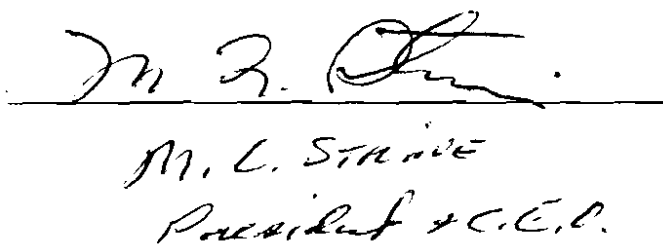 M. L. STRINE
President & C.E.O.